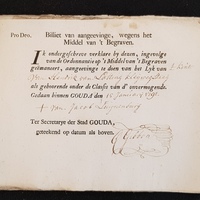 Pro Deo.
Billiet van aangeevinge, wegens het
Middel van 't Begraven.
IK ondergeschreve verklare by deezen, ingevolge
van de Ordonnantie op 't Middel van 't Begraven
geëmaneert, aangeevinge te doen van het Lyk van
Hendrik van
als gehoorende onder de Classis van d' onvermogende.
Gedaan binnen GOUDA, den 18 January
van Jacob
Ter Secretarye der Stad GOUDA,
geteekend op datum als boven.